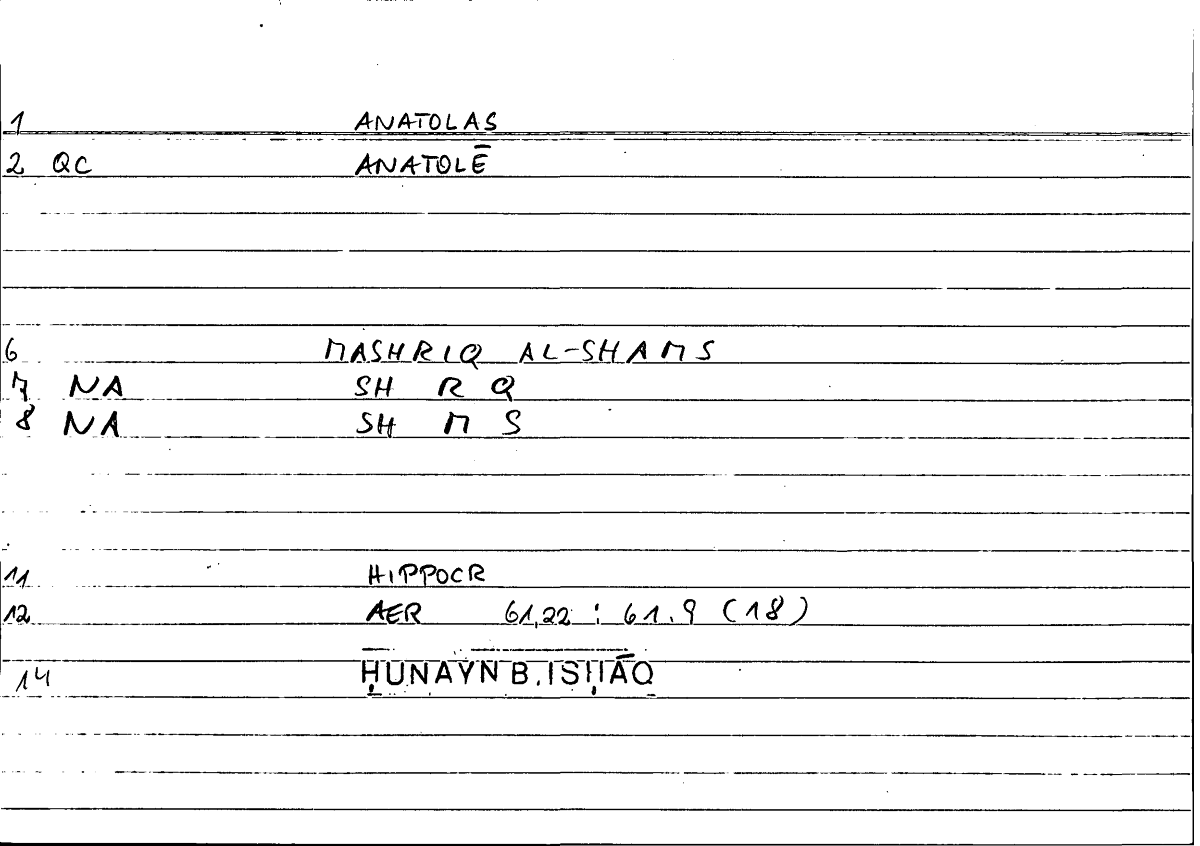 1 ANATOLAS
2 QC ANATOLĒ
6 MASHRIQ AL-SHAMS
7 NA SH R Q
8 NA SH M S
11 HIPPOCR
12 AER 61,22 : 61.9 (18)
14 ḤUNAYN B. ISḤĀQ